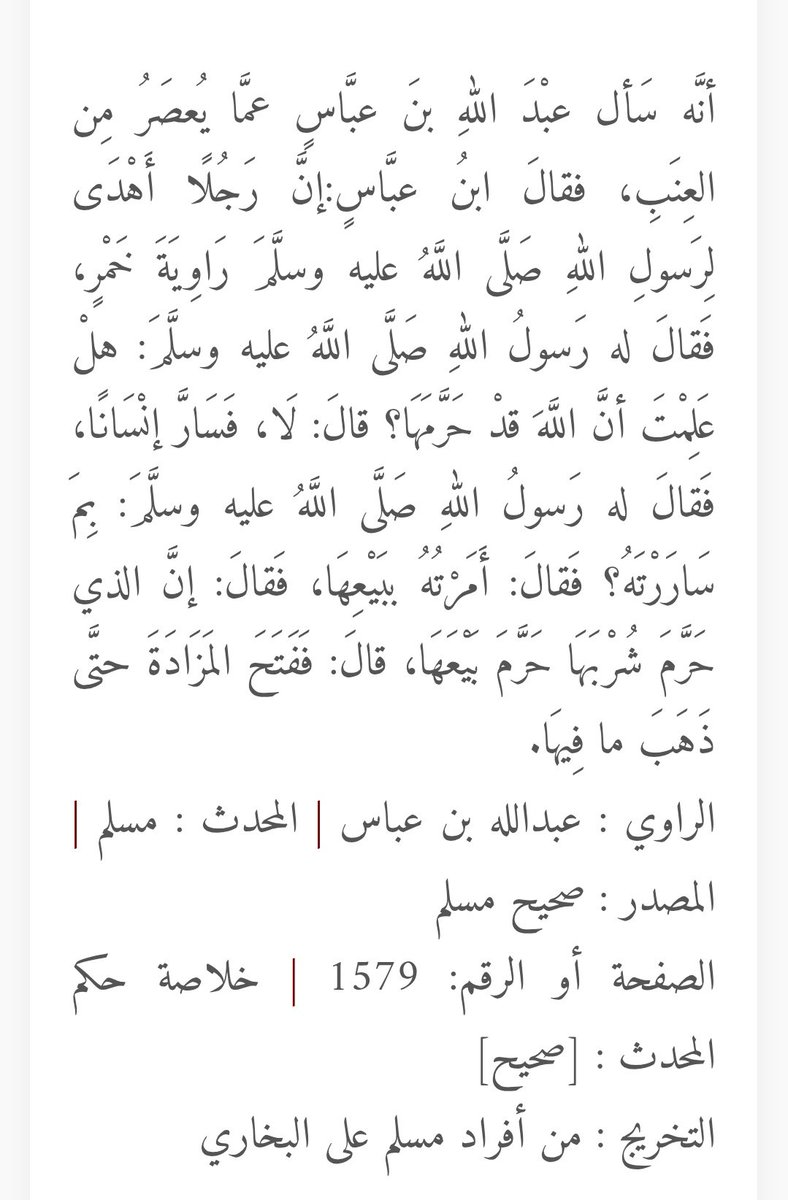 أنَّه سَأل عبْدَ اللهِ بنَ عبَّاسٍ عمَّا يُعصَرُ مِن
العِنَبِ، فقالَ ابنُ عبَّاسٍ:إنَّ رَجُلًا أَهْدَى
لِرَسولِ اللهِ صَلَّى اللَّهُ عليه وسلَّمَ رَاوِيَةَ خَمْرٍ،
فَقالَ له رَسولُ اللهِ صَلَّى اللَّهُ عليه وسلَّمَ: هلْ
عَلِمْتَ أنَّ اللَّهَ قدْ حَرَّمَهَا؟ قالَ: لَا، فَسَارَّ إنْسَانًا،
فَقالَ له رَسولُ اللهِ صَلَّى اللَّهُ عليه وسلَّمَ: بِمَ
سَارَرْتَهُ؟ فَقالَ: أَمَرْتُهُ ببَيْعِهَا، فَقالَ: إنَّ الذي
حَرَّمَ شُرْبَهَا حَرَّمَ بَيْعَهَا، قالَ: فَفَتَحَ المَزَادَةَ حتَّى
ذَهَبَ ما فِيهَا.
الراوي : عبدالله بن عباس | المحدث : مسلم |
المصدر : صحيح مسلم
الصفحة أو الرقم: 1579 | خلاصة حكم
المحدث : [صحيح]
التخريج : من أفراد مسلم على البخاري